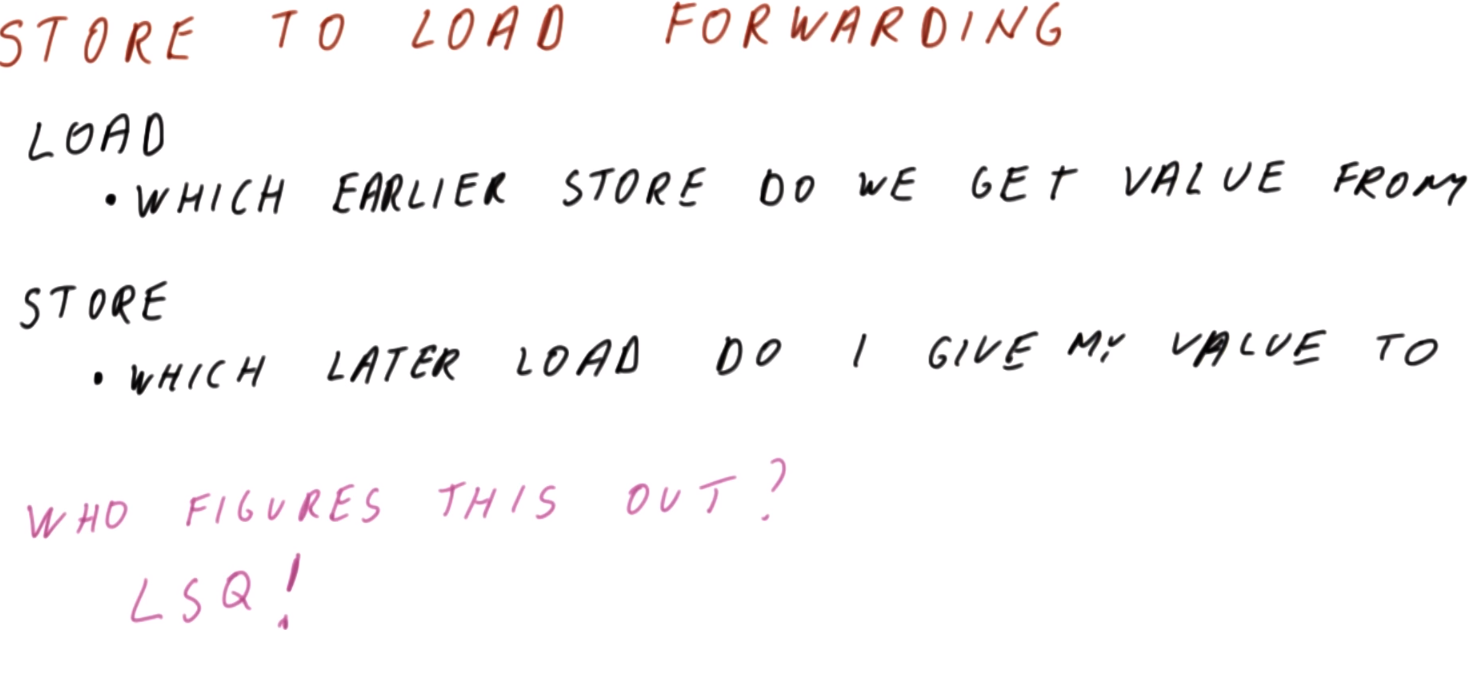 STORE TO LOAD FORWARDING
LOAD
• WHICH EARLIER STORE DO WE GET VALUE FROM
STORE
• WHICH LATER LOAD DO I GIVE MY VALUE TO
WHO FIGURES THIS OUT?
LSQ!